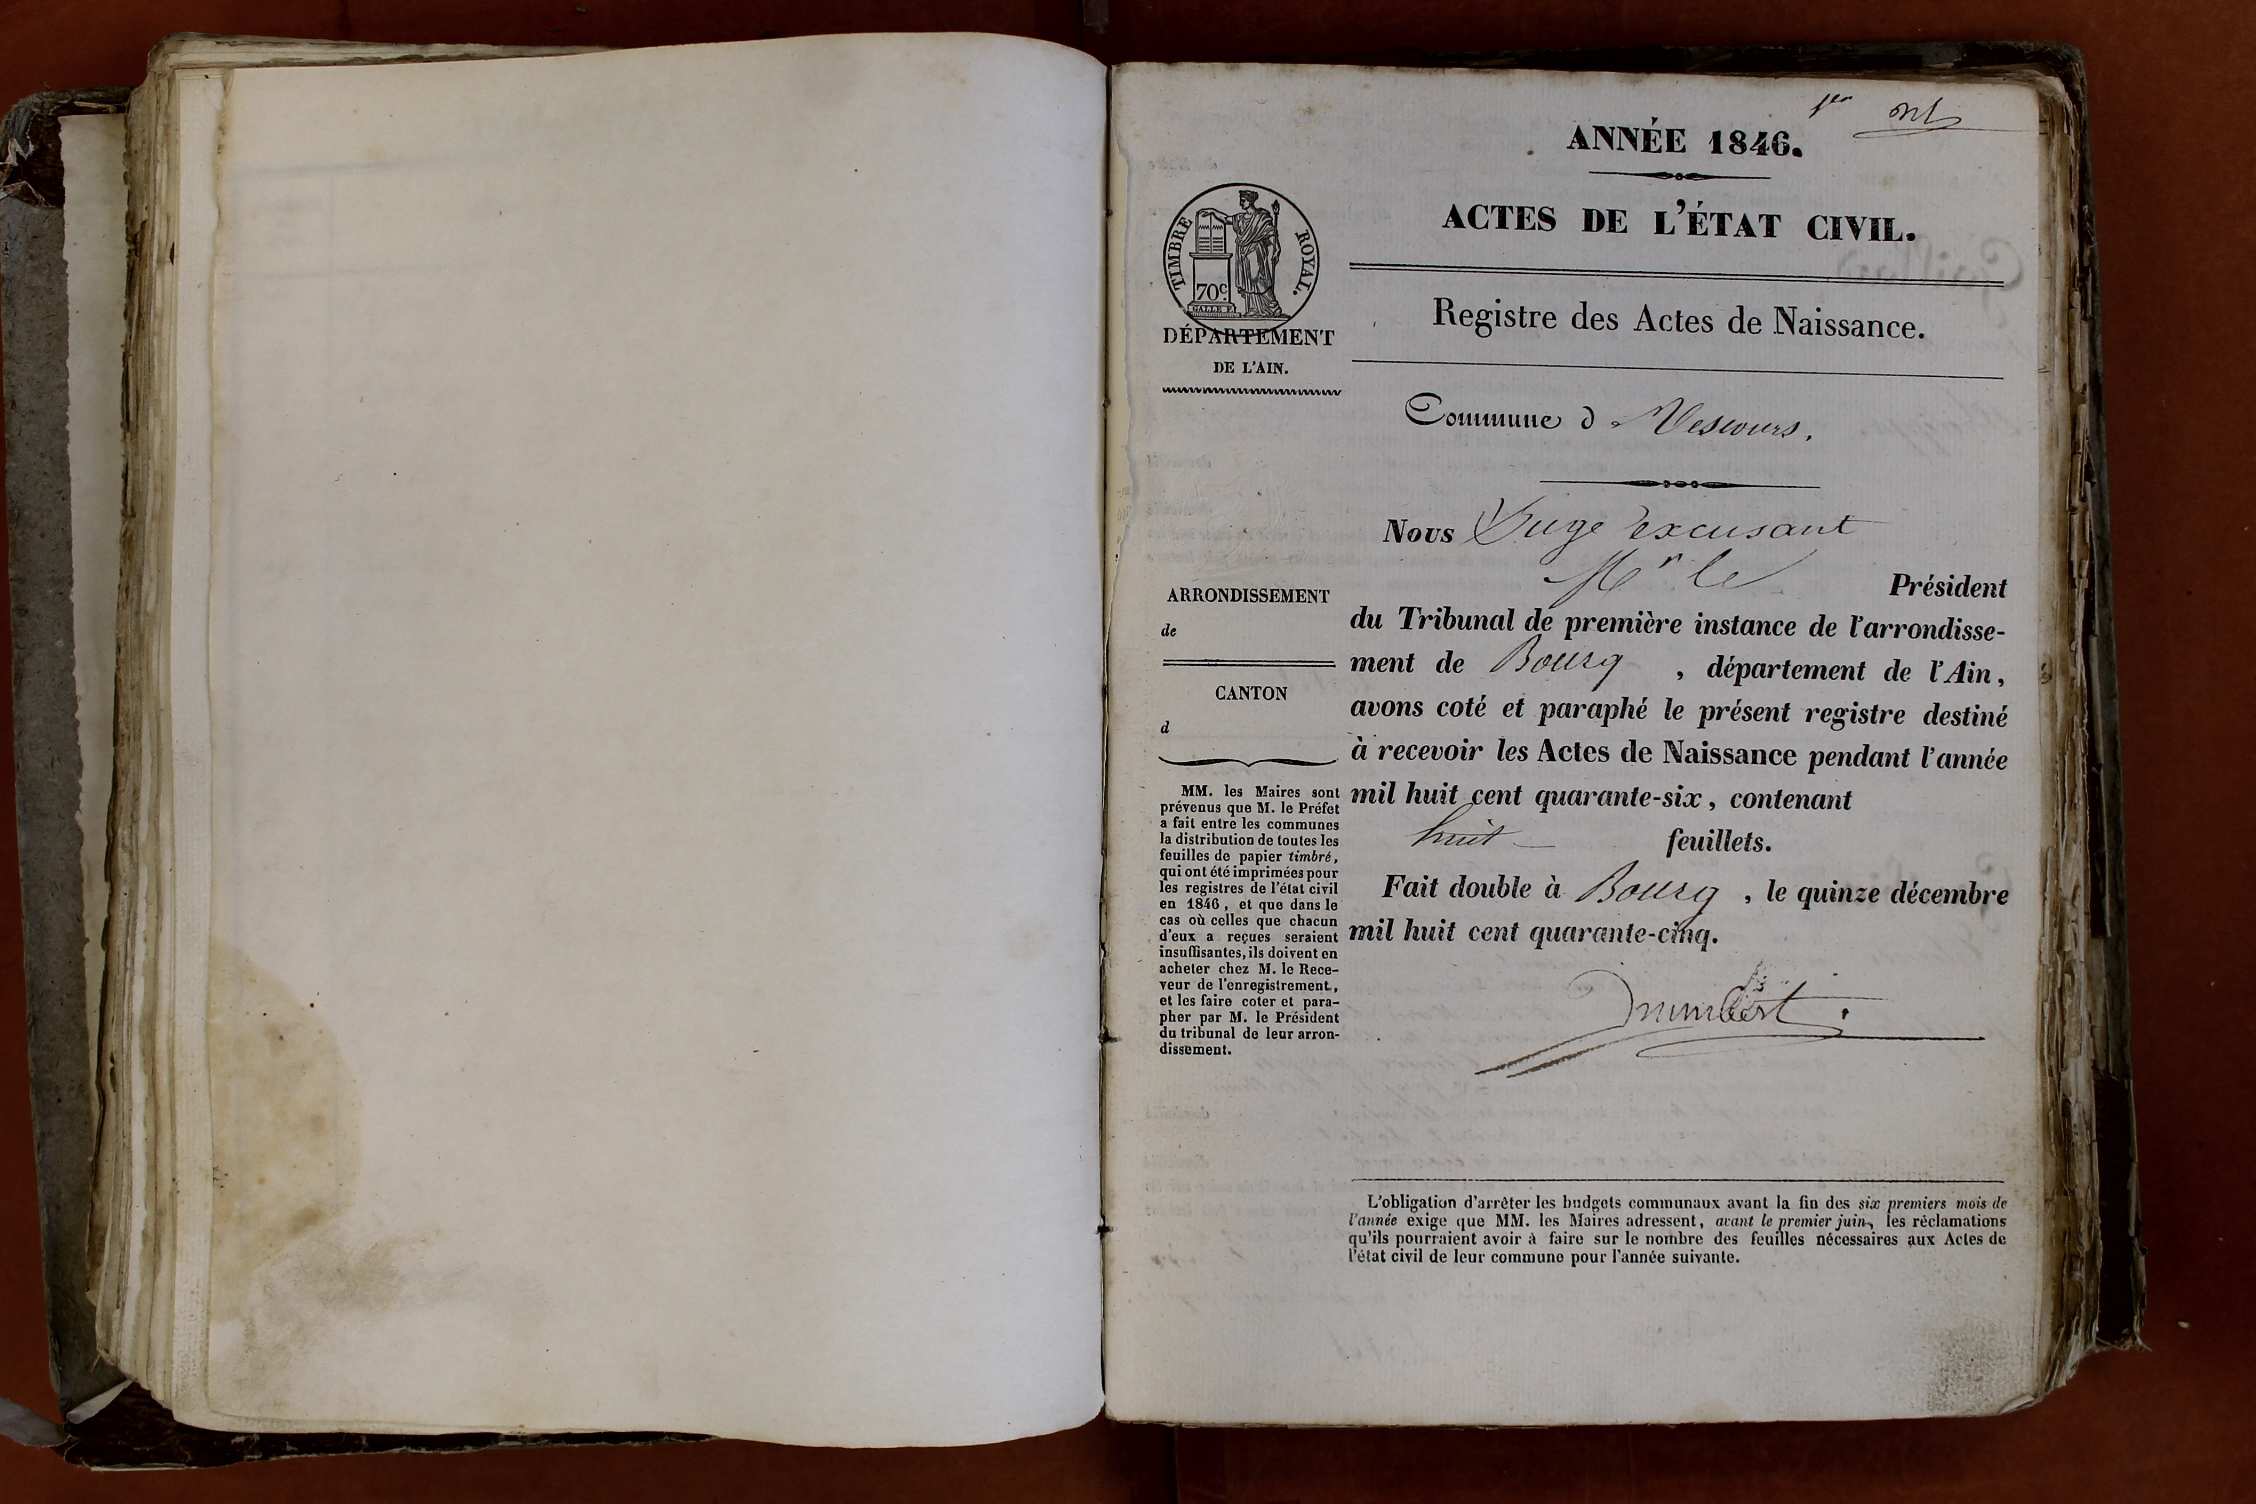 1er
ANNÉE 1846.
ACTES DE L'ÉTAT CIVIL.
TIMBRE ROYAL.
70c
DÉPARTEMENT
DE L'AIN.
Registre des Actes de Naissance.
Commune d Vescours.
Nous Juge excusant
Mr le Président
du Tribunal de première instance de l'arrondisse-
ment de Bourg , département de l'Ain,
avons coté et paraphé le présent registre destiné
à recevoir les Actes de Naissance pendant l'année
mil huit cent quarante-six, contenant
huit feuillets.
Fait double à Bourg , le quinze décembre
mil huit cent quarante-cinq.
ARRONDISSEMENT
de
CANTON
d
MM. les Maires sont
prévenus que M. le Préfet
a fait entre les communes
la distribution de toutes les
feuilles de papier timbré,
qui ont été imprimées pour
les registres de l'état civil
en 1846, et que dans le
cas où celles que chacun
d'eux a reçues seraient
insuffisantes, ils doivent en
acheter chez M. le Rece-
veur de l'enregistrement,
et les faire coter et para-
pher par M. le Président
du tribunal de leur arron-
dissement.
L'obligation d'arrêter les budgets communaux avant la fin des six premiers mois de
l'année exige que MM. les Maires adressent, avant le premier juin, les réclamations
qu'ils pourraient avoir à faire sur le nombre des feuilles nécessaires aux Actes de
l'état civil de leur commune pour l'année suivante.